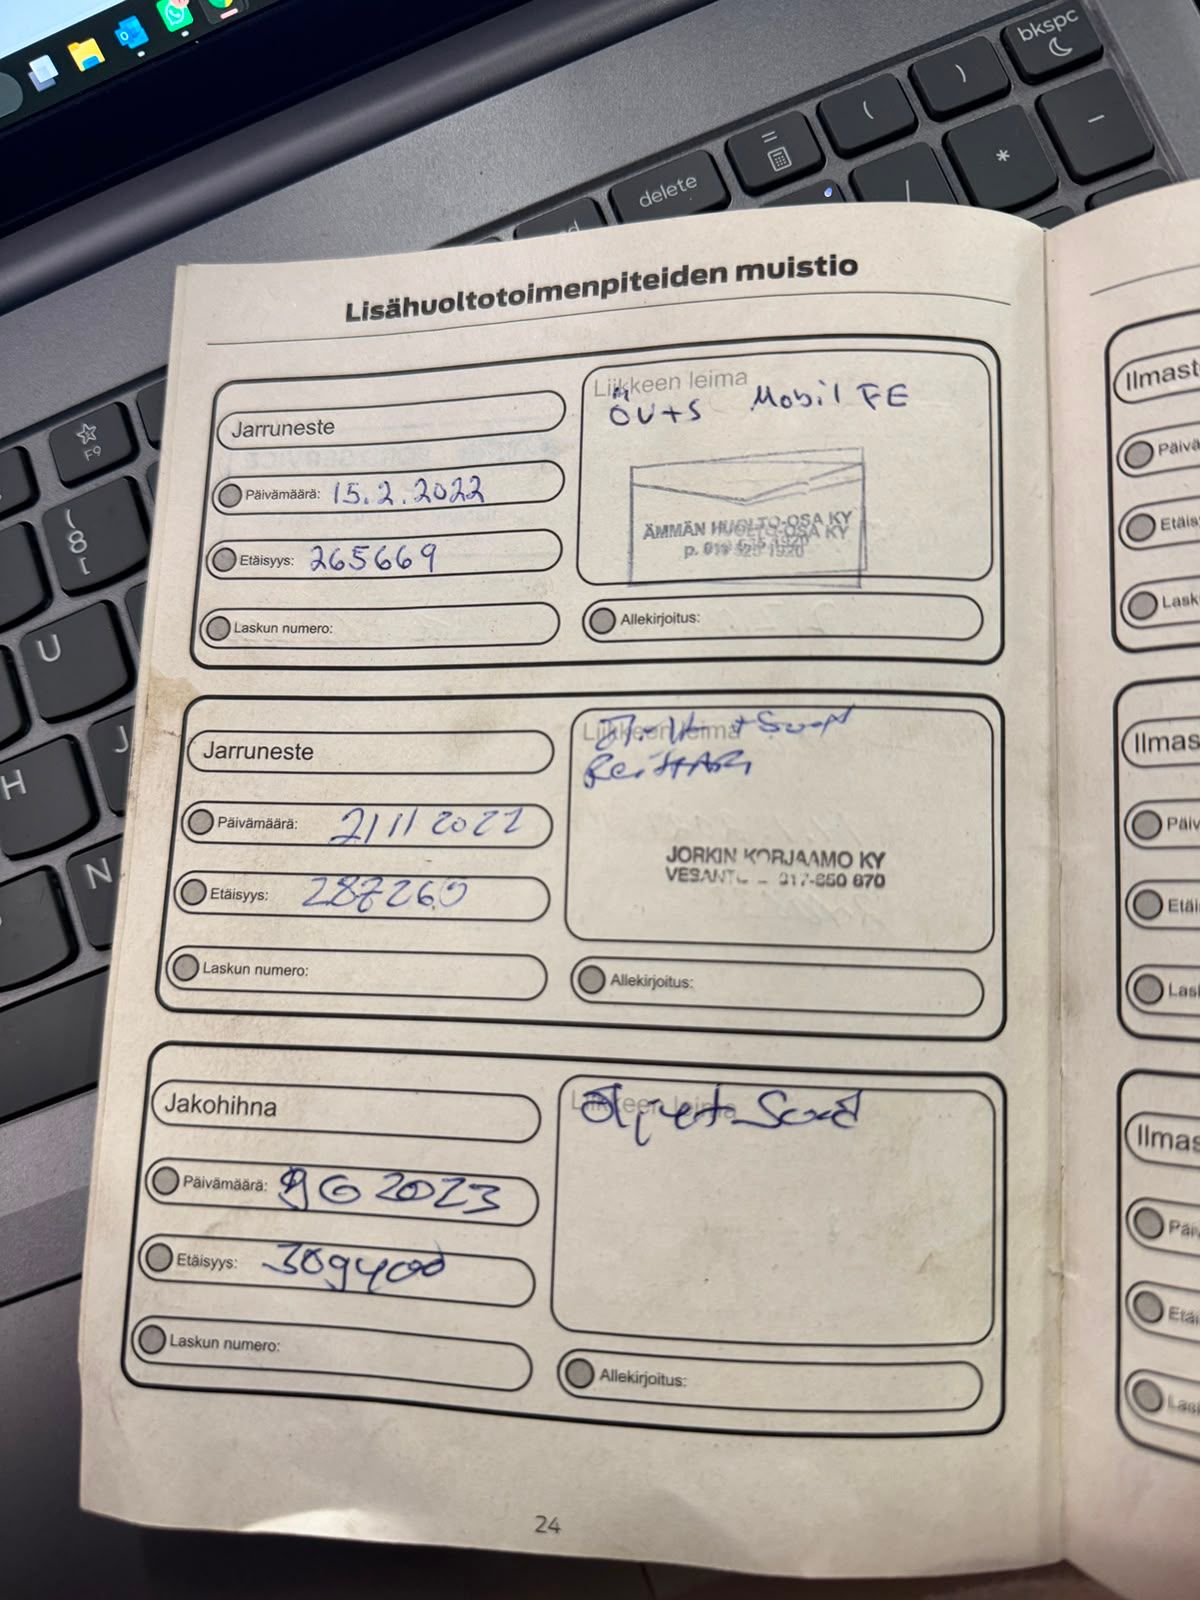 bkspc
delete
F9
8
U
J
H
N
(
)
*
/
-
Lisähuoltotoimenpiteiden muistio
Jarruneste
Päivämäärä: 15.2.2022
Etäisyys: 265669
Laskun numero:
Liikkeen leima
ÖV+S Mobil FE
ÄMMÄN HUOLTO-OSA KY
Allekirjoitus:
Jarruneste
Päivämäärä:
Etäisyys: 287260
Laskun numero:
Liikkeen leima
JORKIN KORJAAMO KY
017-850 670
Allekirjoitus:
Jakohihna
Päivämäärä: 9 6 2023
Etäisyys: 309400
Laskun numero:
Liikkeen leima
Allekirjoitus:
24
Ilmast
Päivä
Etäis
Lask
Ilmas
Päiv
Etäi
Las
Ilmas
Päiv
Etäi
Las